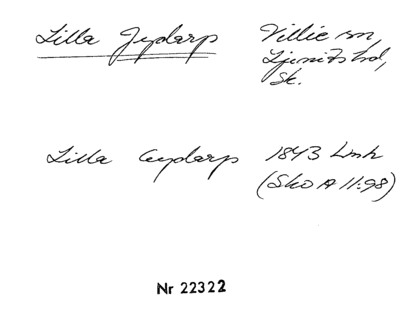 Lilla Jydarp Villie sn,
Ljunits hd,
Sk.
Lilla Cydarp 1843 Lmk
(Sko A 11:98)
Nr 22322